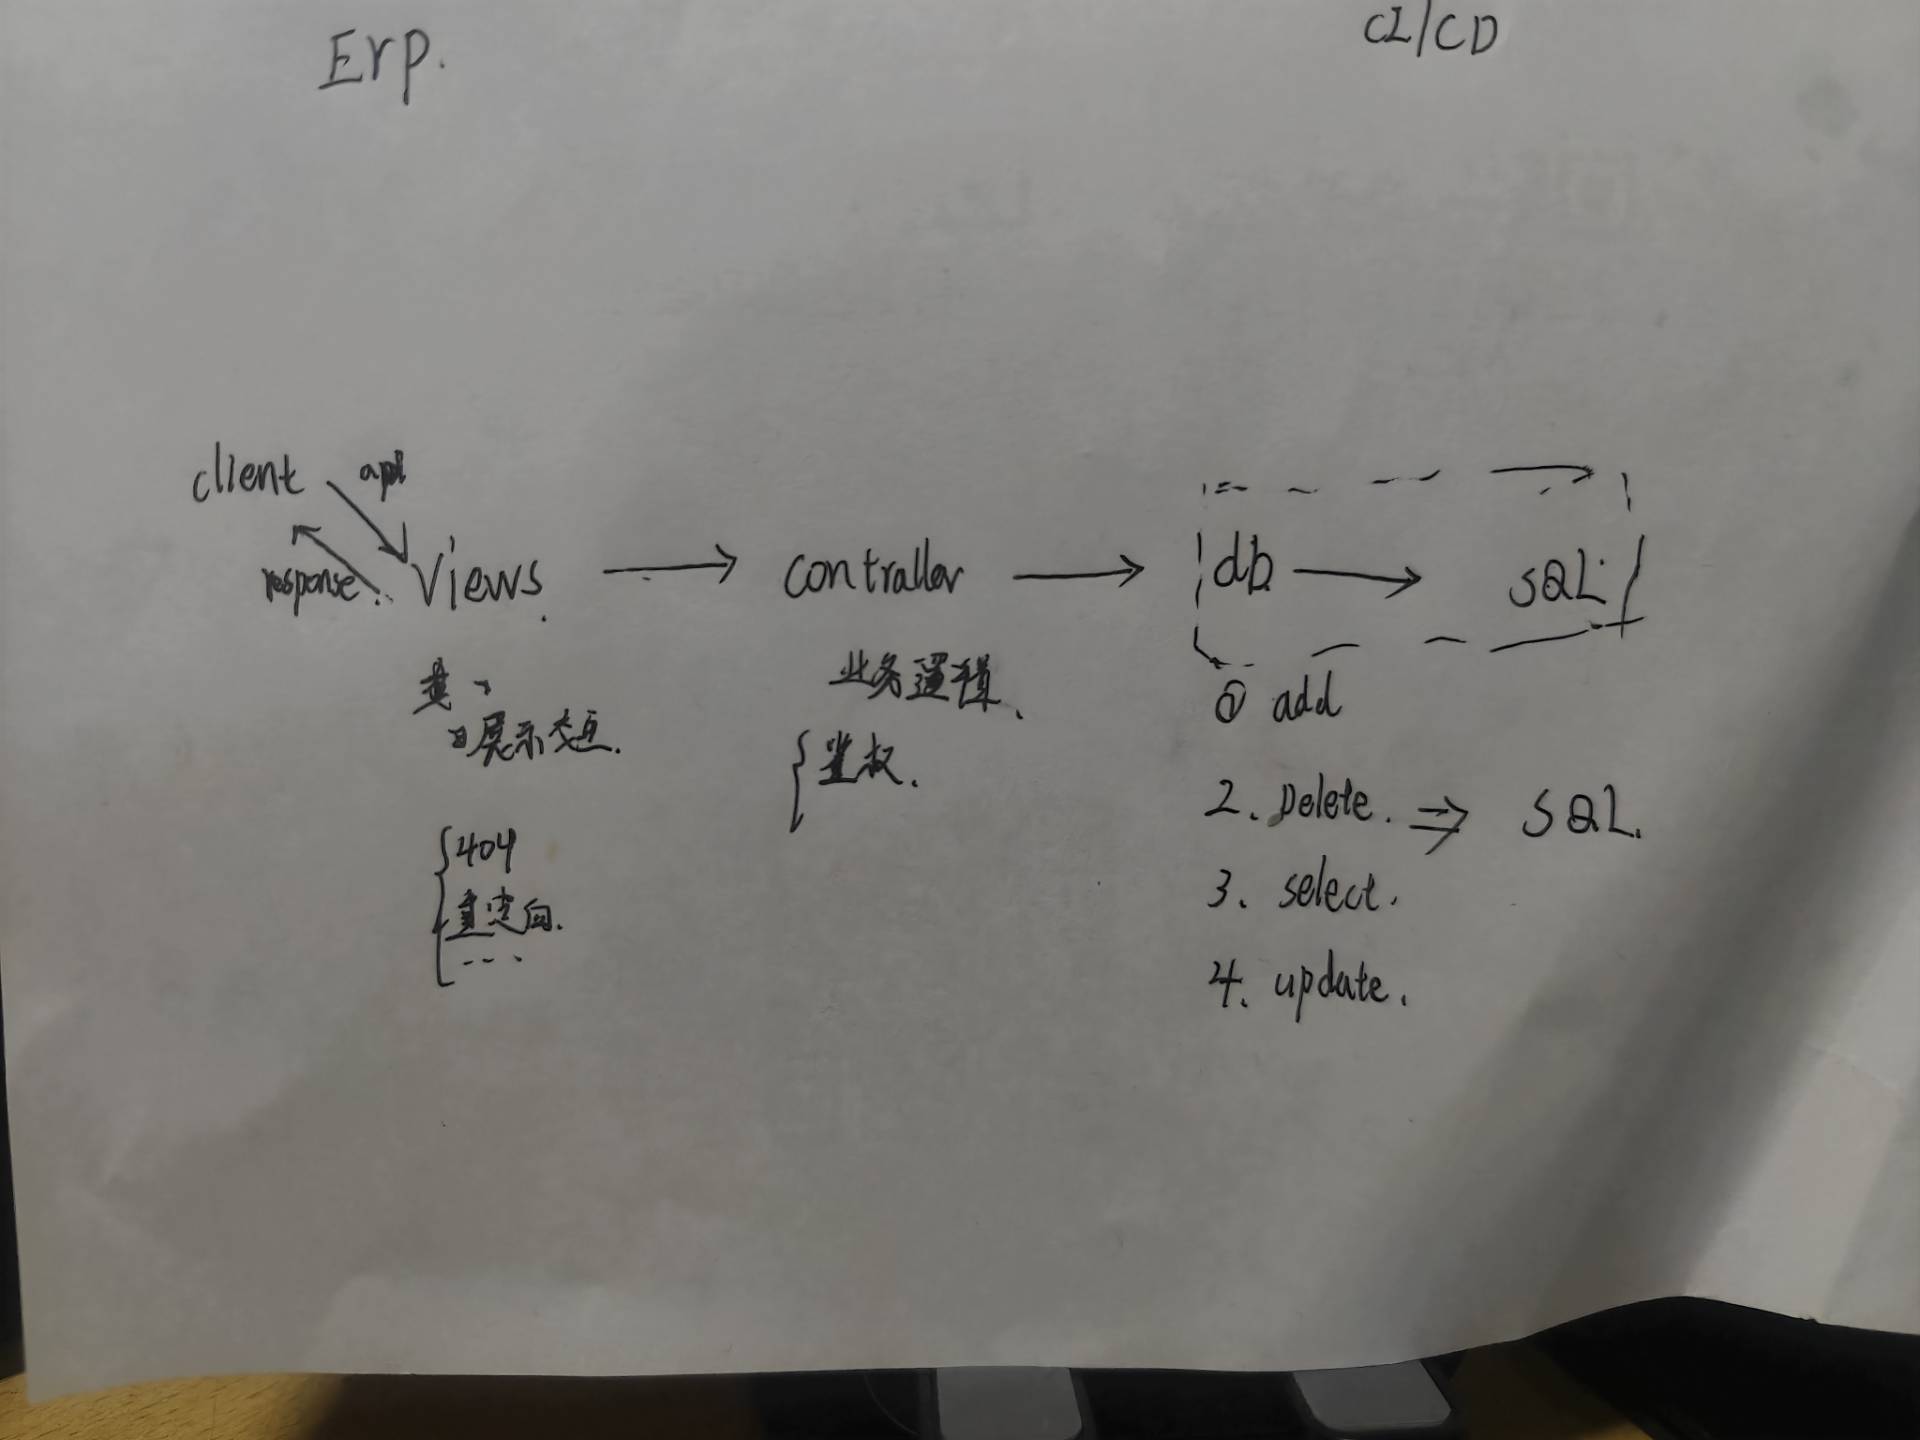 Erp.
CI/CD
client
api
response
Views.
controller
db
SQL
展示交互.
业务逻辑.
鉴权.
404
重定向.
...
① add
2. Delete. ⇒ SQL.
3. select.
4. update.